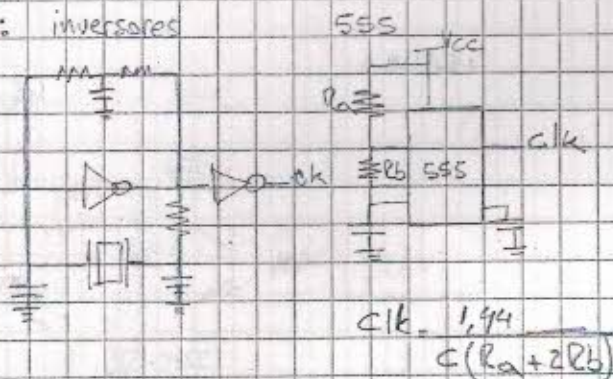 : inversores
555
Vcc
Ra
clk
Rb 555
ck
Clk = 1,44
C(Ra + 2Rb)